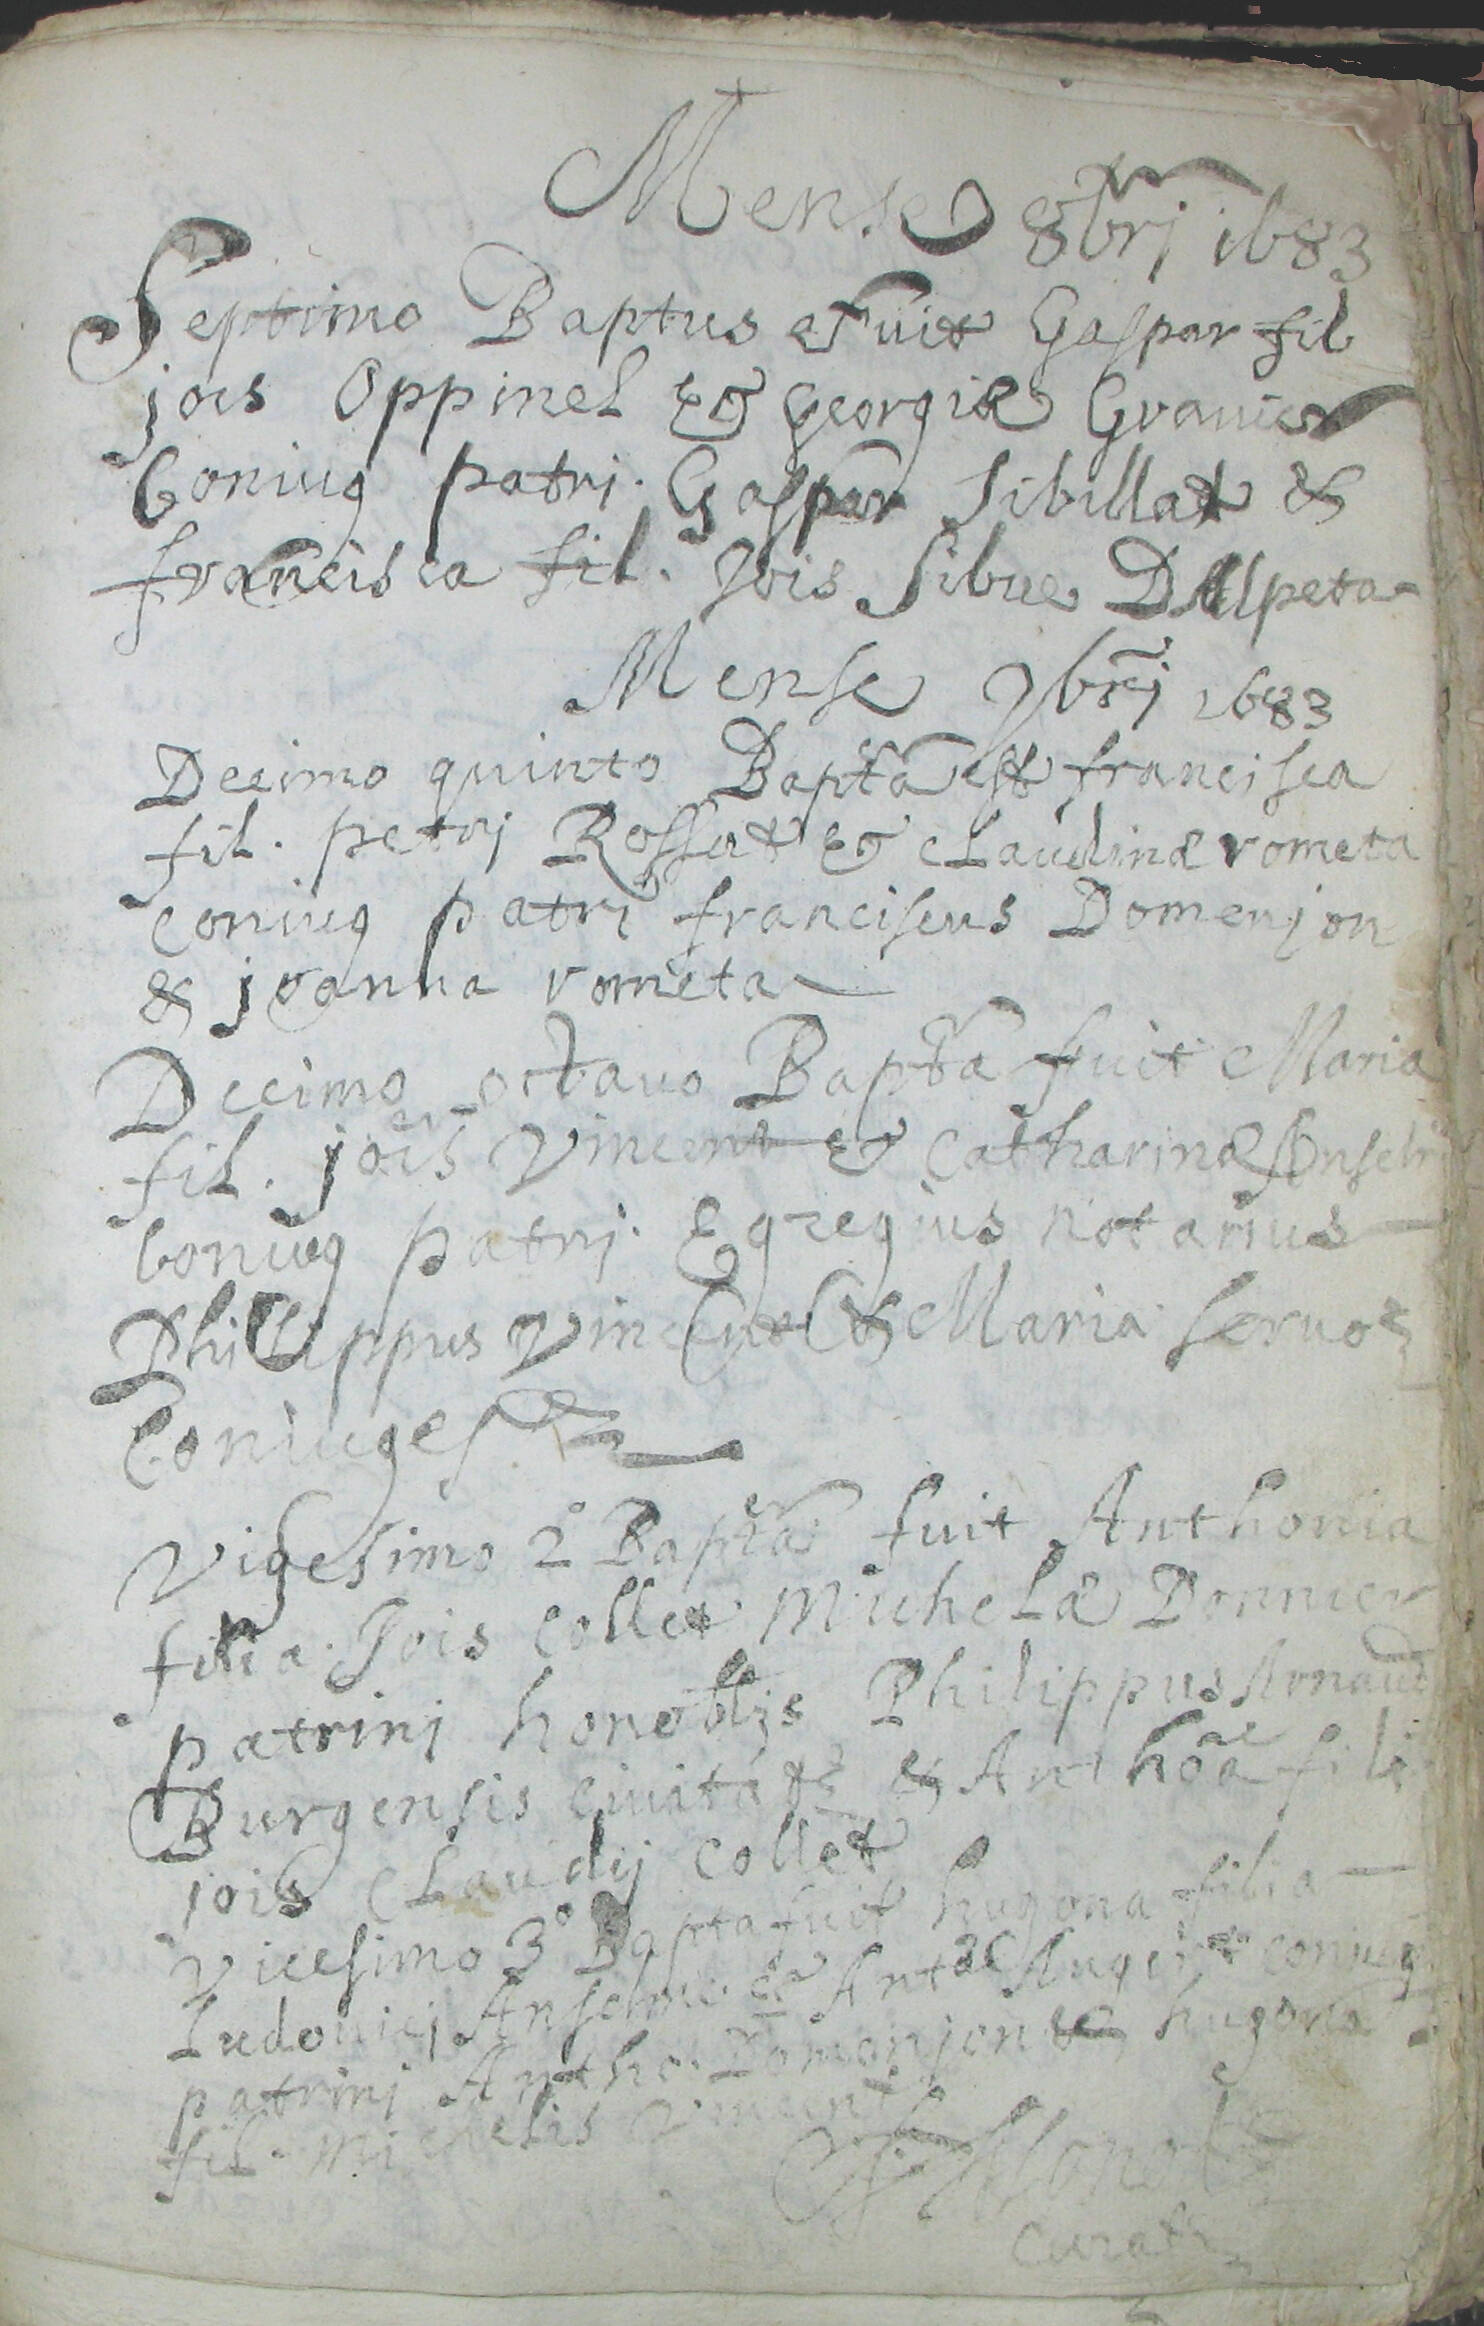 Mense 8brj 1683
Septimo Baptus Fuit Gaspar fil
jois Oppinel & Georgiæ Gravier
Coniug patrj. Gaspar Sibillat &
francisca fil. Jois Sibue D Alpeta
Mense 9brj 1683
Decimo quinto Bapta est francisca
fil. petrj Rosset & Claudinæ rometa
coniug patri franciscus Domenjon
& joanna rometa
Decimo octavo Bapta fuit Maria
fil. jois Vincent & Catharinæ
Coniug patrj. Egregius notarius
Philippus Vincent & Maria
Coniuges
Vigesimo 2° Bapta fuit Anthonia
filia Jois Collet Michelæ Donnier
patrinj honoblis Philippus Arnaud
Burgensis & Anthoa fili
jois Claudij Collet
Vicesimo 3° Bapta fuit hugona filia
Ludovicj Anselme & Antae coniug
patrinj Antho. Domenjon & hugona
fil. Michelis Vincent
curats